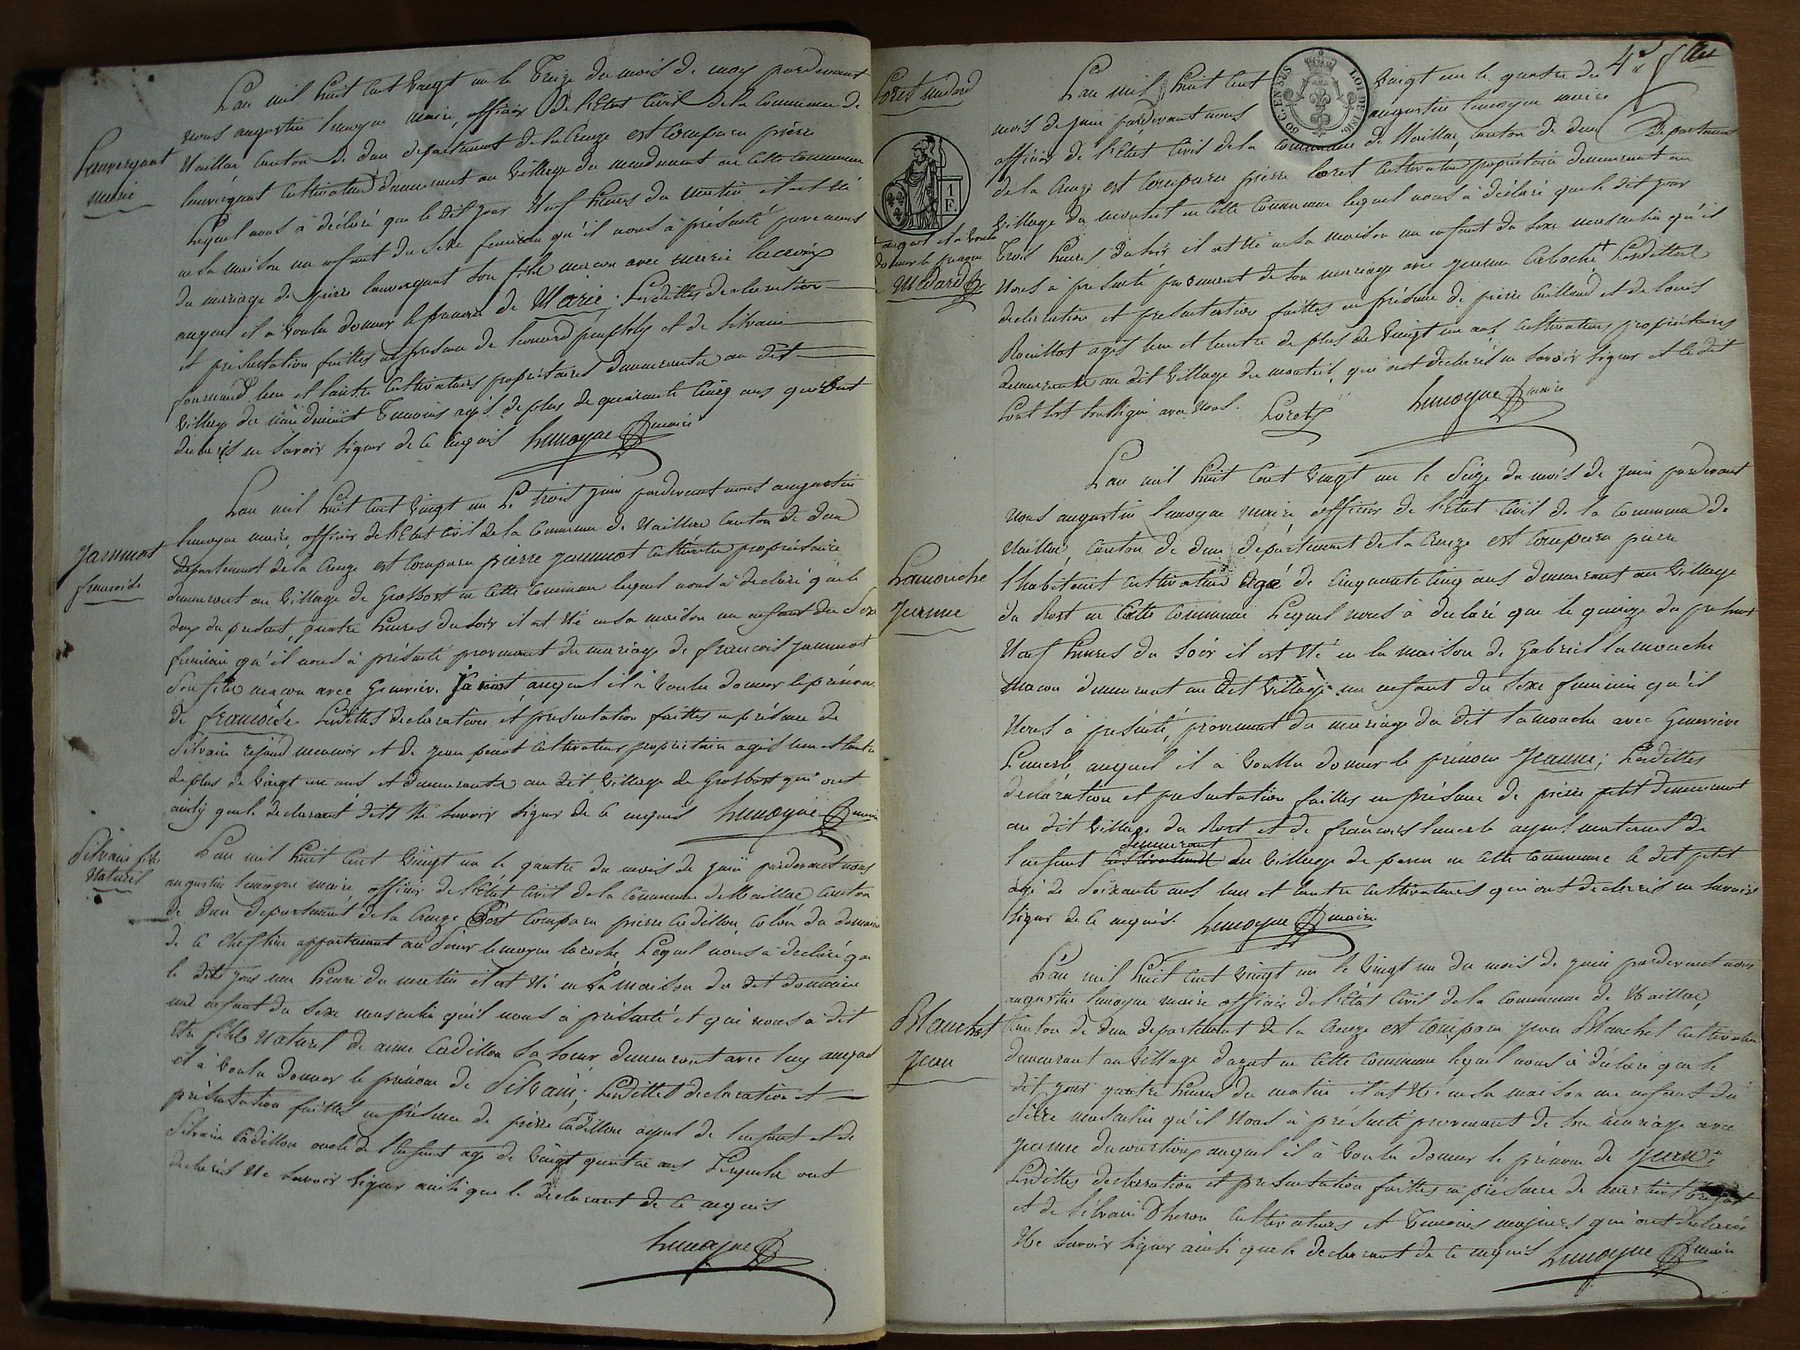 Lauvergnat
marie
L'an mil huit cent vingt un le treize du mois de may pardevant
nous augustin lemoyne maire, officier de l'Etat Civil de la Commune de
Naillac Canton de dun département de la Creuze est Comparu pierre
lauvergnat Cultivateur demeurant au village du maudmont en cette Commune
Lequel nous à déclaré que le dit jour Neuf heures du matin il est Né
en sa maison un enfant du sexe feminin qu'il nous à présenté provenant
du mariage de pierre lauvergnat son fils macon avec marie lacroix
auquel il à voulu donner le prenom de Marie. Lesdittes declaration
et présentation faittes en presence de leonard et de silvain
l'un et l'autre Cultivateurs propriétaires demeurants au dit
village du Temoins agés de plus de quarante Cinq ans qui ont
declarés ne savoir signer de ce enquis Lemoyne maire
Jammot
francoise
L'an mil huit cent vingt un Le trois juin pardevant nous augustin
lemoyne maire, officier de l'Etat Civil de la Commune de Naillac Canton de dun
département de la Creuze est Comparu pierre jammot Cultivateur propriétaire
demeurant au village de Grosbost en cette Commune lequel nous à declaré que le
deux du present, quatre heures du soir il est Né en sa maison un enfant du sexe
feminin qu'il nous à présenté provenant du mariage de francois jammot
son fils macon avec Genevieve auquel il à voulu donner le prénom
de francoise. Lesdittes declaration et presentation faittes en présence de
Silvain menuisier et de jean Cultivateur propriétaire agés l'un et l'autre
de plus de vingt un ans et demeurants au dit village de Grosbost qui ont
ainsy que le declarant dit Ne savoir signer de ce enquis Lemoyne maire
Silvain fils
Naturel
L'an mil huit cent vingt un le quatre du mois de juin pardevant nous
augustin lemoyne maire, officier de l'Etat Civil de la Commune de Naillac Canton
de dun departement de la Creuze Est Comparu pierre Cadillon Colon du domaine
de ce chef lieu appartenant au Sieur lemoyne Lequel nous à déclaré que
le dit jour une heure du matin il est Né en la maison du dit domaine
un enfant du sexe masculin qu'il nous à présenté et qui nous à dit
être fils Naturel de anne Cadillon sa soeur demeurant avec luy auquel
il à voulu donner le prénom de Silvain; Lesdittes declaration et
présentation faittes en présence de pierre Cadillon ayeul de l'enfant et de
Silvain Cadillon oncle de l'enfant agé de vingt quatre ans Lesquels ont
declarés Ne savoir signer ainsi que le declarant de ce enquis
Lemoyne
4e f.llet
Loret médard
auquel il a voulu
donner le prenom
Médard
L'an mil huit cent vingt un le quatre du
mois de juin pardevant nous augustin lemoyne maire
officier de l'Etat Civil de la Commune de Naillac, canton de dun Departement
de la Creuze est Comparu pierre Loret Cultivateur propriétaire demeurant au
village du monteil en cette Commune lequel nous à déclaré que le dit jour
Trois heures du soir il est Né en sa maison un enfant du sexe masculin qu'il
Nous à présenté provenant de son mariage avec jeanne Lesdittes
declaration et presentation faittes en présence de pierre et de louis
Rouillot agés l'un et l'autre de plus de vingt un ans Cultivateurs propriétaires
demeurants au dit village du monteil, qui ont declarés ne savoir signer et le dit
Loret s'est soussigné avec Nous. Loret Lemoyne maire
Lamouche
Jeanne
L'an mil huit cent vingt un le Seize du mois de juin pardevant
Nous augustin lemoyne maire officier de l'Etat Civil de la Commune de
Naillac, Canton de dun département de la Creuze est Comparu pierre
Cultivateur agé de Cinquante Cinq ans demeurant au village
du en Cette Commune Lequel nous à declaré que le quinze du présent
Neuf heures du Soir il est Né en la maison de Gabriel lamouche
Macon demeurant au dit village un enfant du sexe feminin qu'il
Nous à présenté, provenant du mariage du dit lamouche avec Genevieve
auquel il à voulu donner le prénom Jeanne; Lesdittes
declaration et presentation faittes en présence de pierre petit demeurant
au dit village du et de francois ayeul maternel de
l'enfant demeurant au village de en cette commune le dit petit
agé de Soixante ans l'un et l'autre cultivateurs qui ont declarés ne savoir
signer de ce enquis. Lemoyne maire
Blanchet
Jean
L'an mil huit cent vingt un le vingt un du mois de juin pardevant nous
augustin lemoyne maire officier de l'Etat Civil de la Commune de Naillac,
Canton de dun departement de la Creuze est Comparu jean Blanchet Cultivateur
demeurant au village en cette Commune lequel nous à déclaré que le
dit jour quatre heures du matin il est Né en sa maison un enfant du
Sexe masculin qu'il Nous à présenté provenant de son mariage avec
jeanne auquel il à voulu donner le prénom de Jean;
Lesdittes declaration et presentation faittes en présence de
et de Silvain Cultivateurs et Temoins majeurs qui ont declarés
Ne savoir signer ainsi que le declarant de ce enquis Lemoyne maire